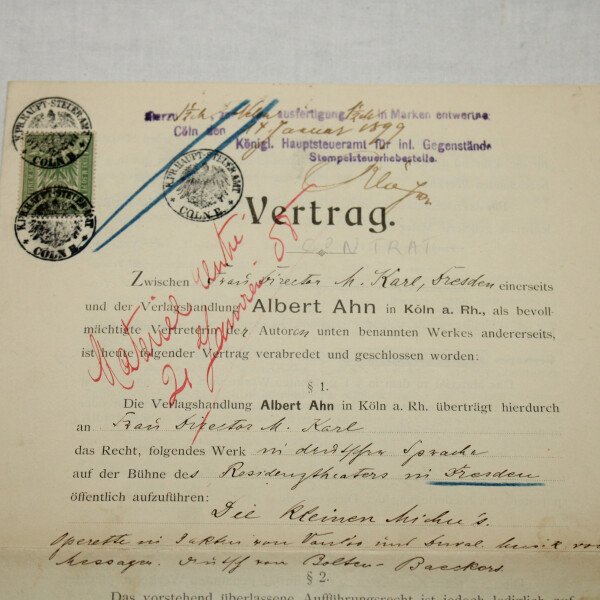 K.PR.HAUPT-STEUER AMT
CÖLN B.
K.PR.HAUPT-STEUER AMT
CÖLN B.
K.PR.HAUPT-STEUER AMT
CÖLN B.
ausfertigung in Marken entwerthet
Cöln den Januar 1899
Königl. Hauptsteueramt für inl. Gegenstände
Stempelsteuerhebestelle.
Vertrag.
CONTRAT
Matériel rentré
21 Janvier
Zwischen Frau Director M. Karl, Dresden einerseits
und der Verlagshandlung Albert Ahn in Köln a. Rh., als bevoll-
mächtigte Vertreterin der Autoren unten benannten Werkes andererseits,
ist heute folgender Vertrag verabredet und geschlossen worden:
§ 1.
Die Verlagshandlung Albert Ahn in Köln a. Rh. überträgt hierdurch
an Frau Director M. Karl
das Recht, folgendes Werk in deutscher Sprache
auf der Bühne des Residenztheaters in Dresden
öffentlich aufzuführen:
Die kleinen Michu's.
Operette in 3 Akten von Vanloo und Duval. Musik von
Messager. Deutsch von Bolten-Baeckers.
§ 2.
Das vorstehend überlassene Aufführungsrecht ist jedoch lediglich auf